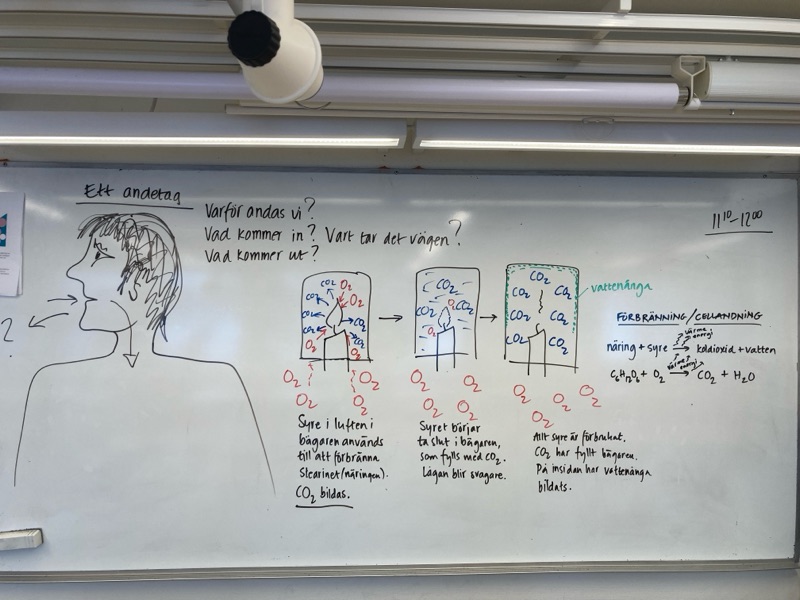 Ett andetag
Varför andas vi?
Vad kommer in? Vart tar det vägen?
Vad kommer ut?
11¹⁰-12⁰⁰
?
CO₂ O₂
CO₂ O₂
CO₂ CO₂
CO₂ CO₂
O₂ O₂
O₂ O₂
O₂ O₂
Syre i luften i
bägaren används
till att förbränna
stearinet (näringen).
CO₂ bildas.
CO₂
CO₂ O₂ CO₂
O₂
O₂ O₂
O₂ O₂
Syret börjar
ta slut i bägaren,
som fylls med CO₂.
Lågan blir svagare.
CO₂
CO₂ CO₂
CO₂ CO₂
CO₂ CO₂
vattenånga
O₂ O₂ O₂
O₂
Allt syre är förbrukat.
CO₂ har fyllt bägaren.
På insidan har vattenånga
bildats.
FÖRBRÄNNING/CELLANDNING
värme
energi
näring + syre → koldioxid + vatten
värme
energi
C₆H₁₂O₆ + O₂ → CO₂ + H₂O